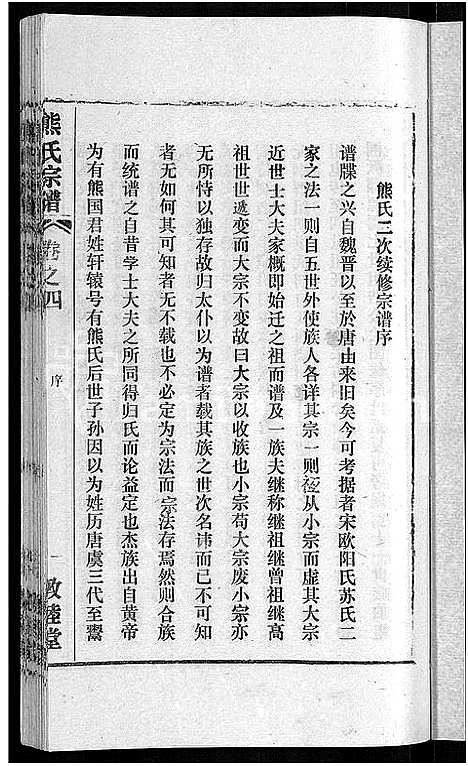 熊氏二次续修宗谱序
谱牒之兴自魏晋以至於唐由来旧矣今可考据者宋欧阳氏苏氏二
家之法一则自五世外使族人各详其宗一则从小宗而虚其大宗
近世士大夫家概即始迁之祖而谱及一族夫继称继祖继曾祖继高
祖世世遞变而大宗不变故曰大宗以收族也小宗苟大宗废小宗亦
无所恃以独存故归太仆以为谱者载其族之世次名讳而已不可知
者无如何其可知者无不载也不必定为宗法而宗法存焉然则合族
而统谱之自昔学士大夫之所同得归氏而论益定也杰族出自黄帝
为有熊国君姓轩辕号有熊氏后世子孙因以为姓历唐虞三代至鬻
熊氏宗谱
卷之四
序
一
敦睦堂